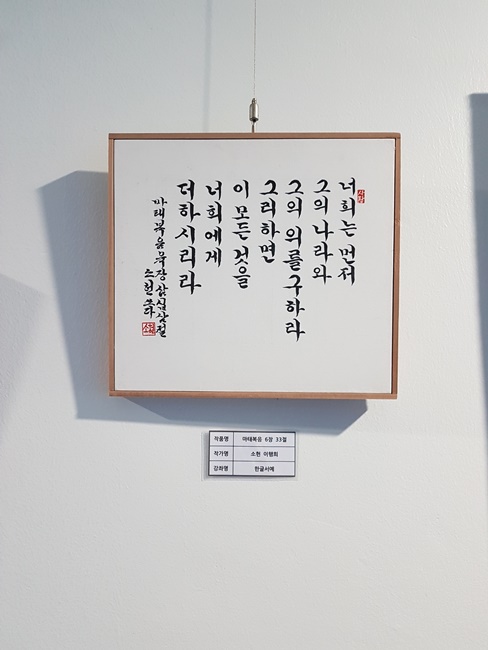 너희는 먼저
그의 나라와
그의 의를 구하라
그리하면
이 모든 것을
너희에게
더하시리라
마태복음 육장 삼십삼절
소헌 쓰다
작품명 마태복음 6장 33절
작가명 소헌 이행희
강좌명 한글서예